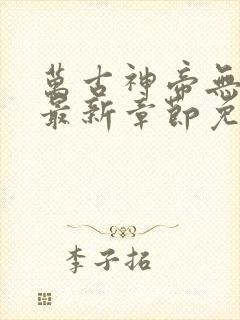 萬古神帝無
最新章節免
李子拓